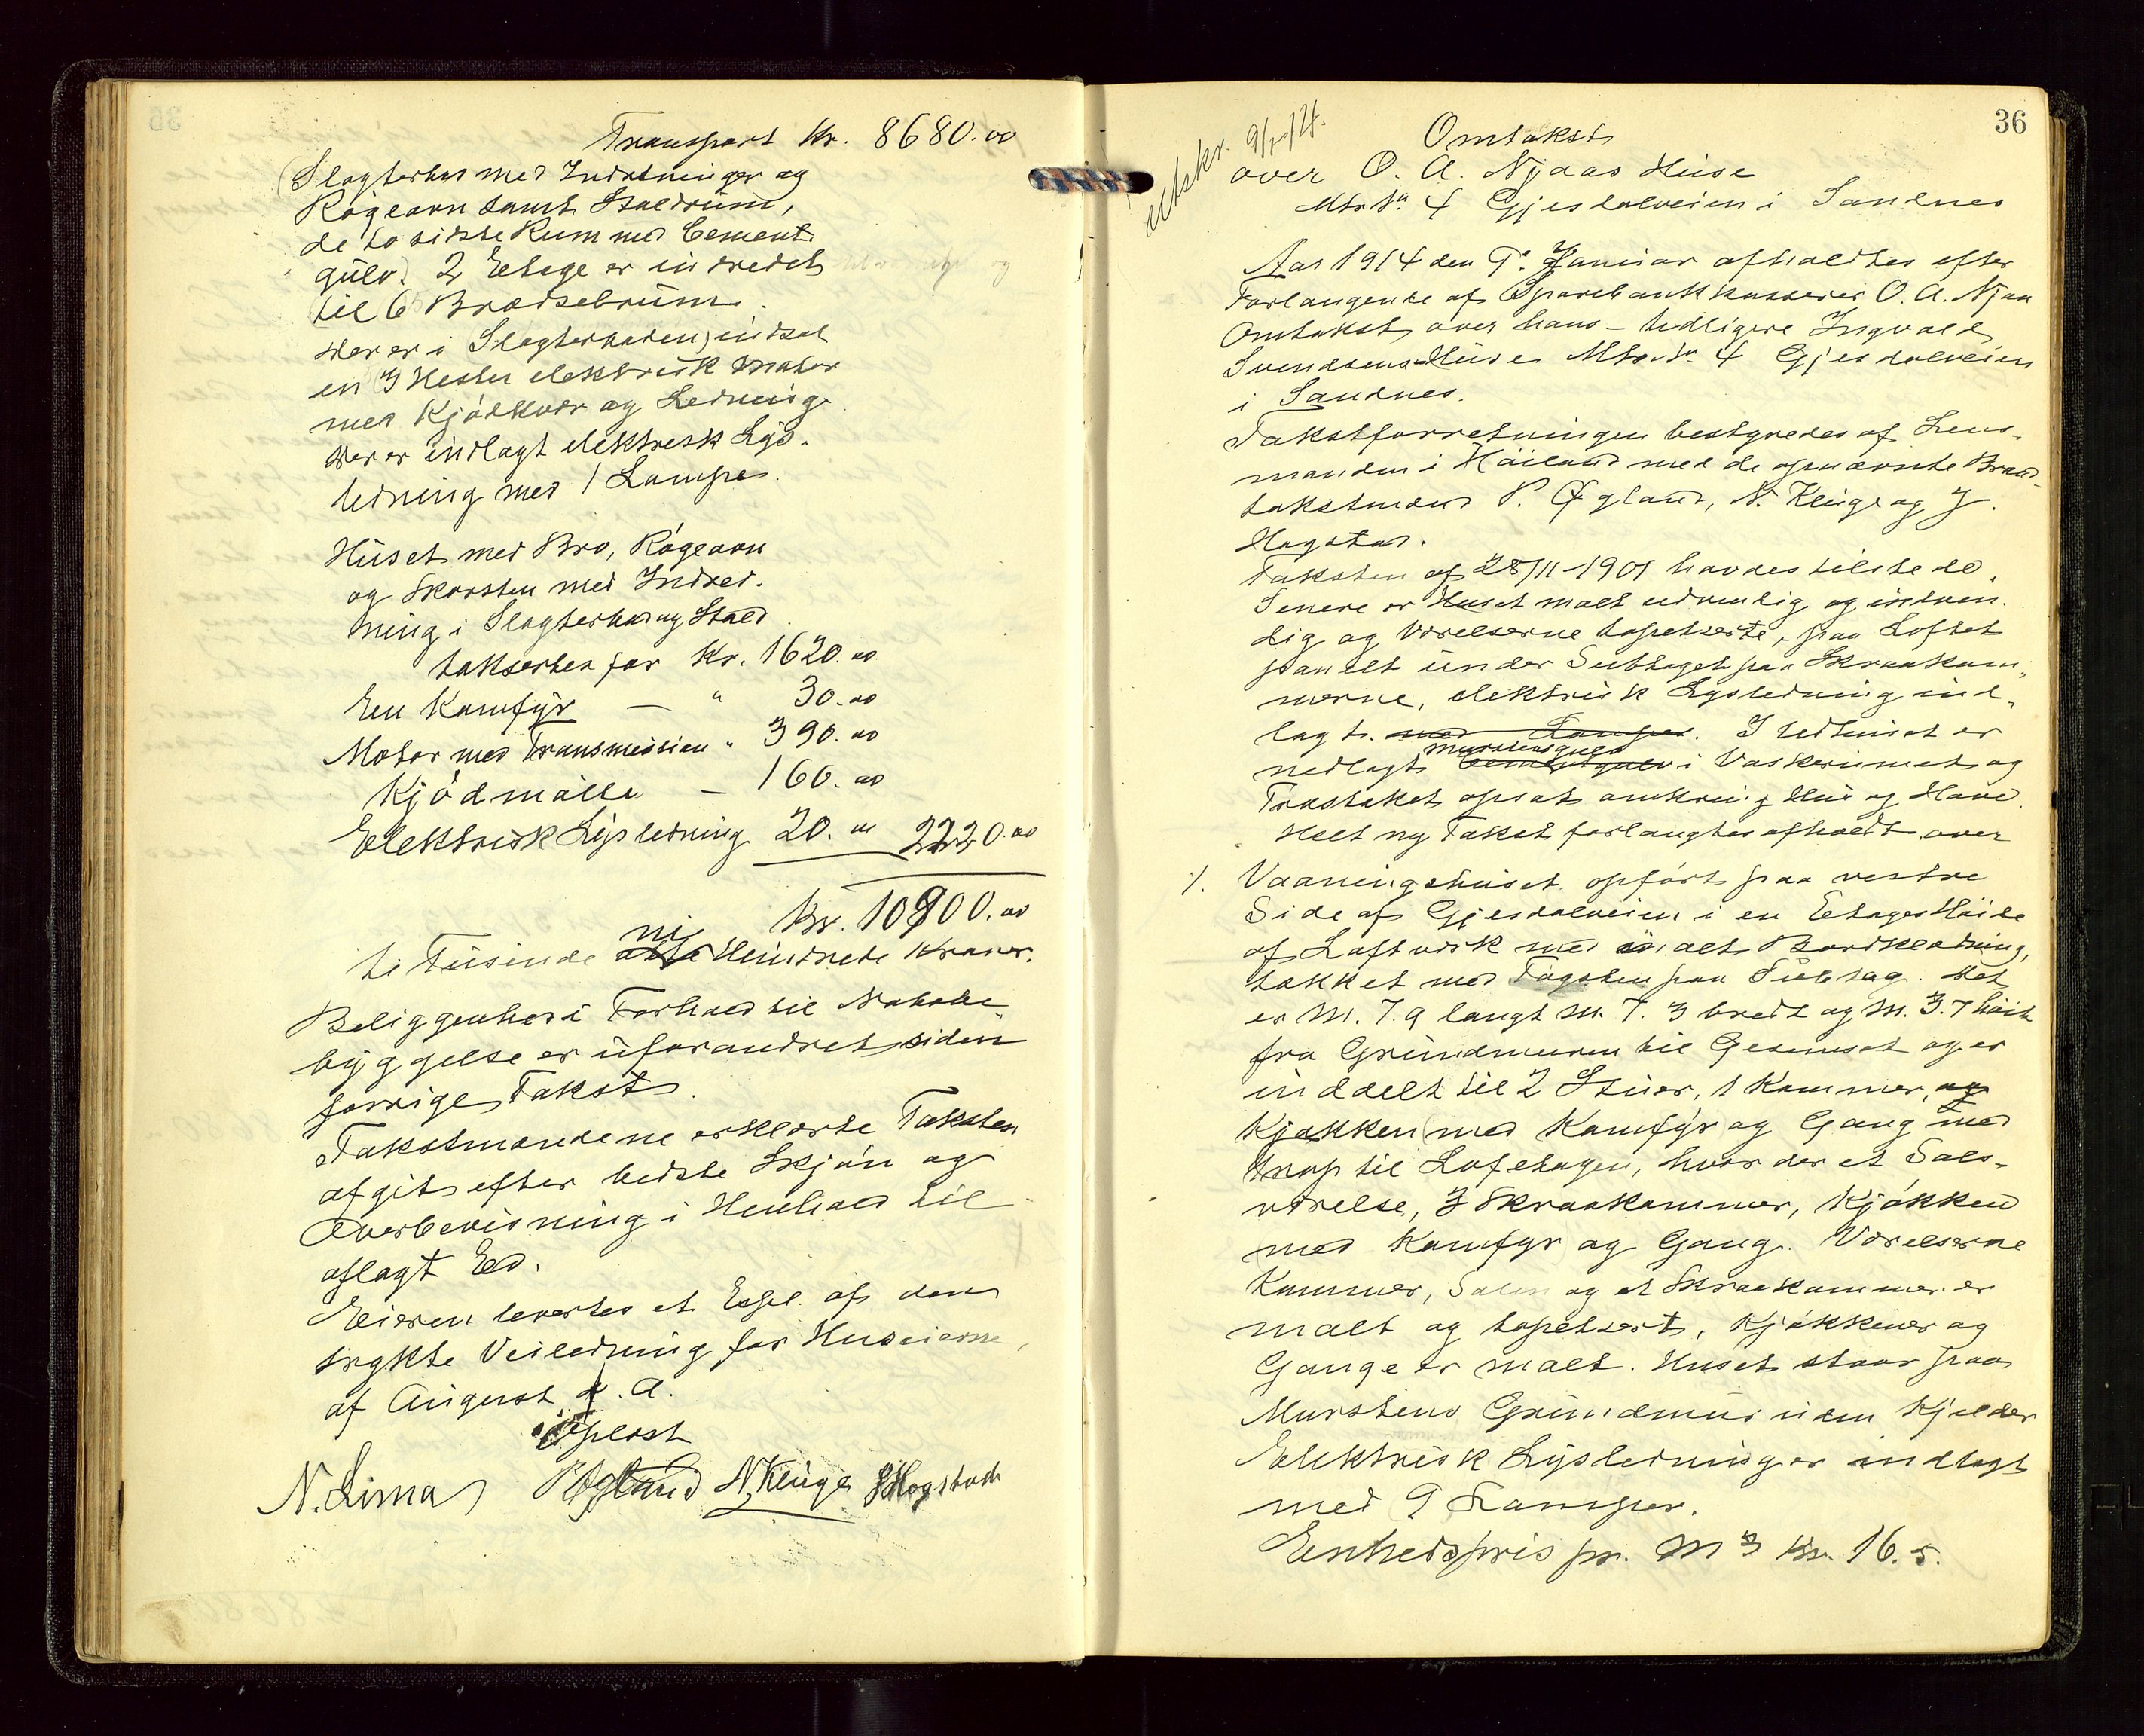 Transport Kr. 8680.00
(Slagterhus med Indretninger og
Røgeovn samt Staldrum,
de to sidste Rum med Cement
gulv). 2 Etage er indredet
til 6 Brødsebrum.
Der er i Slagterboden indsat
en 3 Hesters elektrisk Motor
med Kjødkvær og Ledning.
Der er indlagt elektrisk Lys-
ledning med 1 Lampe.
Huset med Bro, Røgeovn
og Skorsten med Indred-
ning i Slagterhus og Stald
takseres for Kr. 1620.00
En Komfyr — " 30.00
Motor med Transmission " 390.00
Kjødmølle — 160.00
Elektrisk Lysledning 20.00 2220.00
Kr. 10900.00
ni
ti Tusinde otte Hundrede Kroner.
Beliggenhed i Forhold til Nabobe-
byggelse er uforandret siden
forrige Takst.
Takstmændene erklærte Taksten
afgit efter bedste Skjøn og
Overbevisning i Henhold til
aflagt Ed.
Eieren levertes et Expl. af den
trykte Veiledning for Huseierne
af August f. A.
Oplæst
N. Lima P Øgland N. Kluge J Hogstad
36
Utskr. 9/2/14.
Omtakst
over O. A. Njaas Huse
Mtr. Nr. 4 Gjesdalveien i Sandnes
Aar 1914 den 9. Januar afholdtes efter
Forlangende af Sparebankkasserer O. A. Njaa
Omtakst over hans - tidligere Ingvald
Svendsens Huse Mtr. Nr. 4 Gjesdalveien
i Sandnes.
Takstforretningen bestyredes af Lens-
manden i Høiland med de opnævnte Brand-
takstmænd P. Øgland, N. Kluge og J.
Hogstad.
Taksten af 28/11-1901 havdes tilstede.
Senere er Huset malt udvendig og indven-
dig og Værelserne tapetserte, paa Loftet
panelt under Subtaget paa Skraakam-
merne, elektrisk Lysledning ind-
lagt. med Lamper. I Udhuset er
murstensgulv
nedlagt Cementgulv i Vaskerumet og
Træstaket opsat omkring Hus og Have.
Helt ny Takst forlangtes afholdt over
1. Vaaningshuset opført paa vestre
Side af Gjesdalveien i en Etages Høide
af Loftvirk med malt Bordklædning,
tækket med Tagsten paa Subtag. Det
er M. 7.9 langt M. 7.3 bredt og M. 3.7 høit
fra Grundmuren til Gesimset og er
inddelt til 2 Stuer, 1 Kammer, og
Kjøkken (med Komfyr og Gang med
trap til Loftetagen, hvor der et Sals-
værelse, 3 Skraakammer, Kjøkken
med Komfyr og Gang. Værelserne
Kammer, Salen og et Skraakammer er
malt og tapetsert, Kjøkkener og
Gange er malt. Huset staar paa
Murstens Grundmur uden Kjelder
Elektrisk Lysledning er indlagt
med 9 Lamper.
Enhedspris pr. M3 Kr. 16.5.